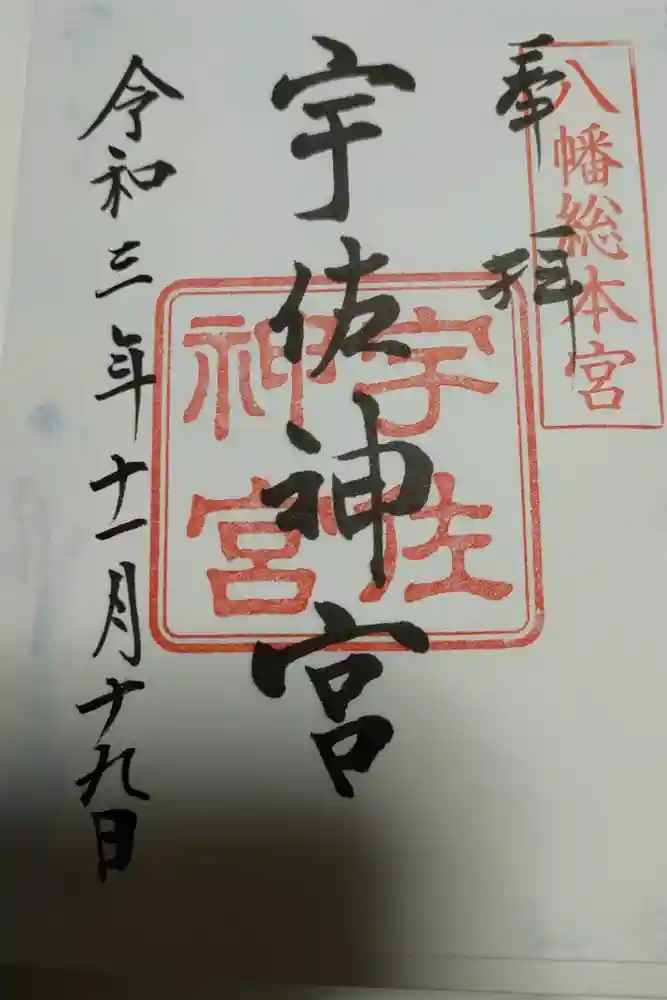 奉拝
八幡総本宮
宇佐神宮
宇佐
神宮
令和三年十一月十九日